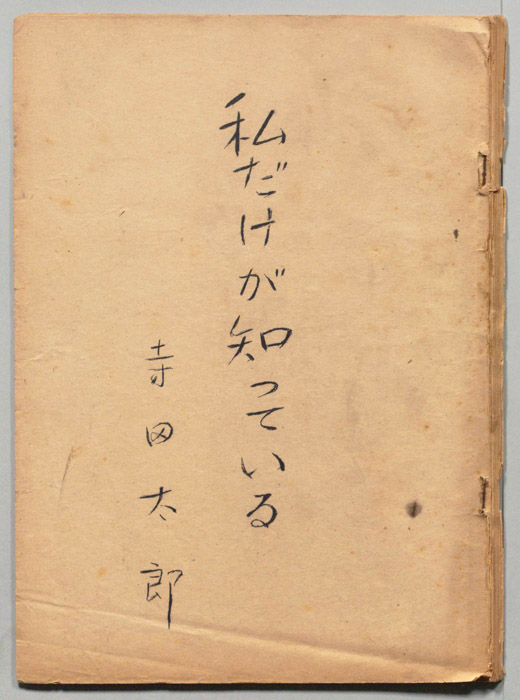 私だけが知っている
寺田太郎